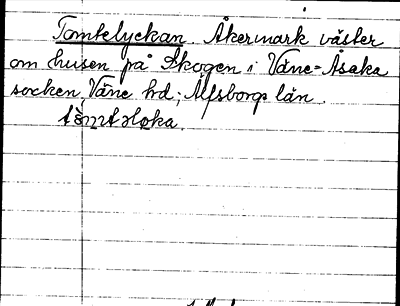 Tomtelyckan. Åkermark väster
om husen på Skogen i Väne-Åsaka
socken, Väne hd; Älfsborgs län.